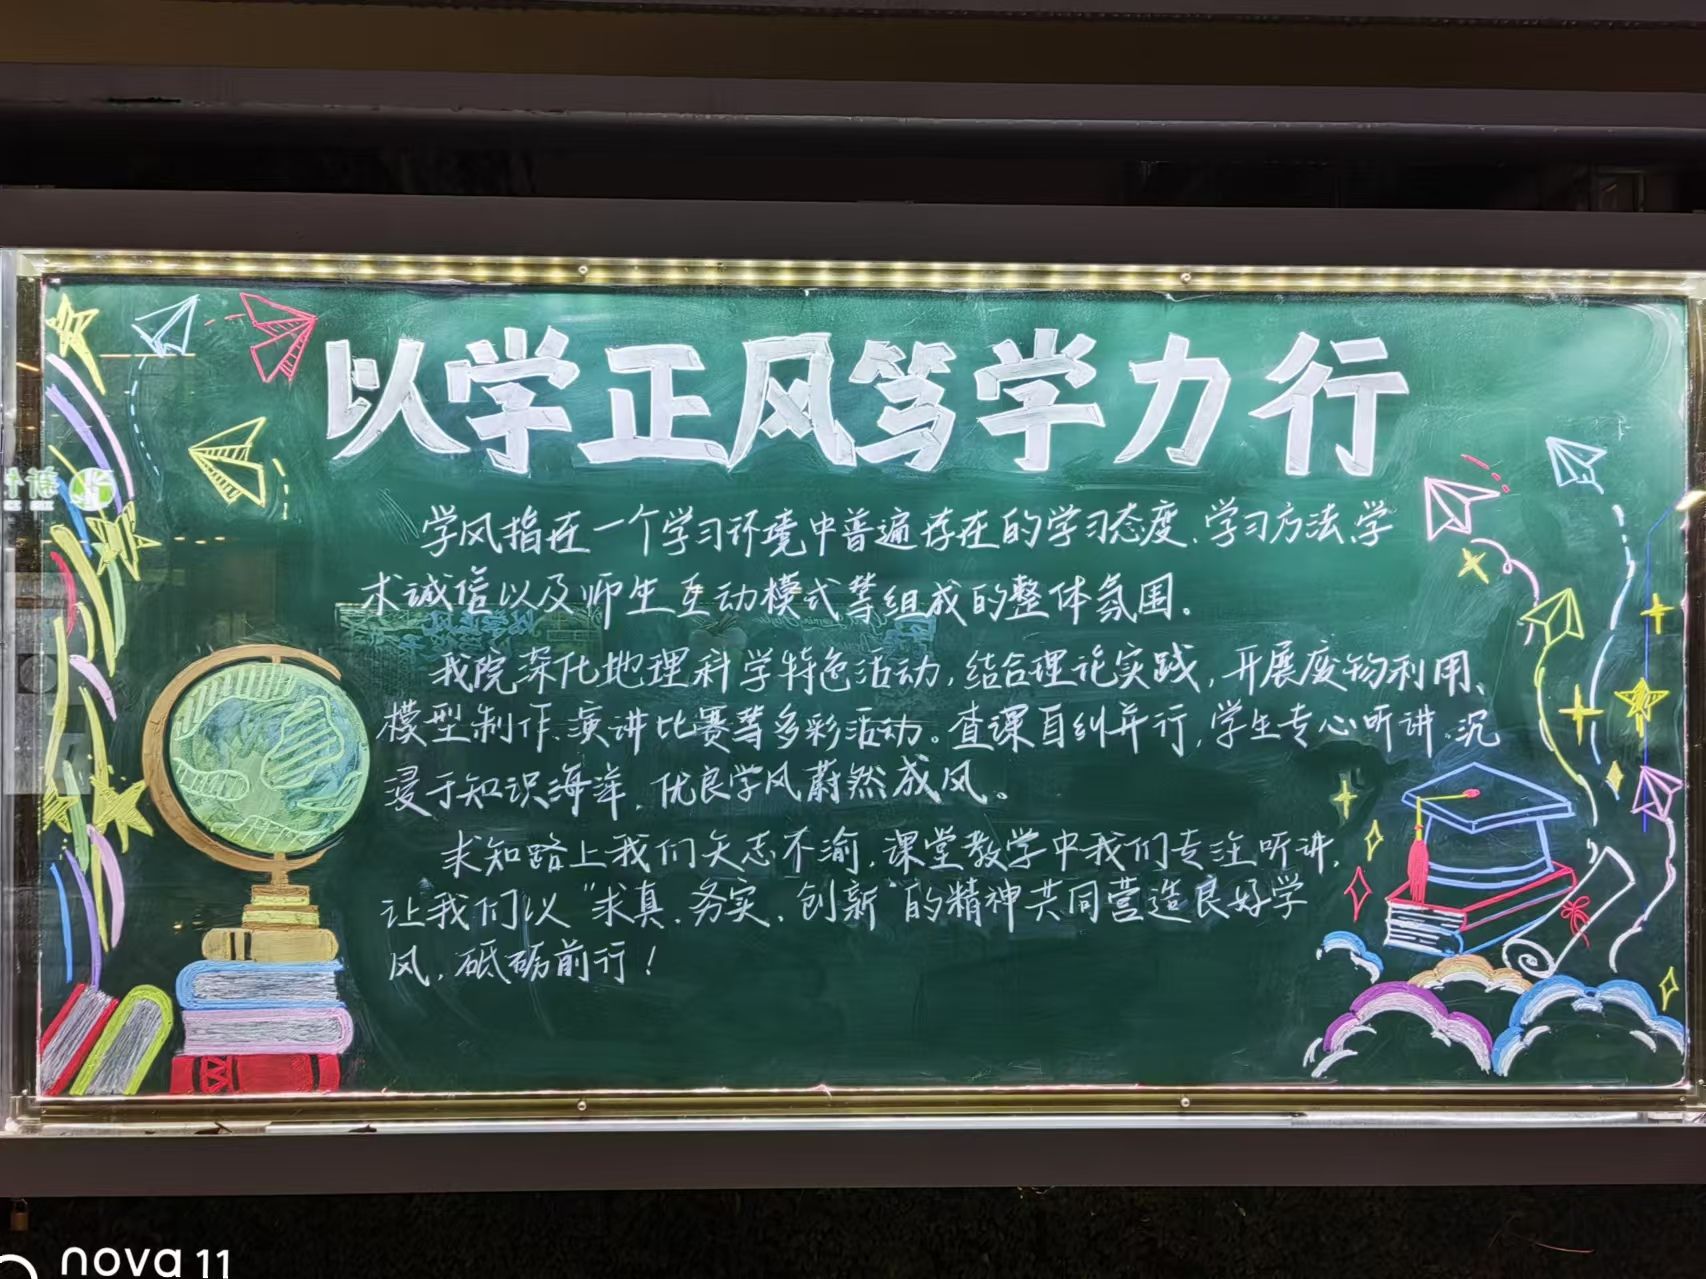 以学正风笃学力行
学风指在一个学习环境中普遍存在的学习态度、学习方法、学
术诚信以及师生互动模式等组成的整体氛围。
我院深化地理科学特色活动,结合理论实践,开展废物利用、
模型制作、演讲比赛等多彩活动。查课自纠并行,学生专心听讲。沉
浸于知识海洋,优良学风蔚然成风。
求知路上我们矢志不渝,课堂教学中我们专注听讲,
让我们以“求真、务实、创新”的精神共同营造良好学
风,砥砺前行!
nova 11